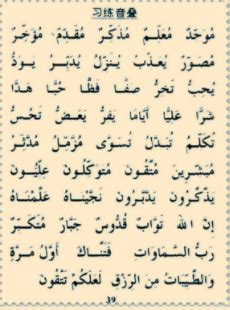 习练音叠
مُوَحِّدٌ مُعَلِّمٌ مُذَكِّرٌ مُقَدِّمٌ مُؤَخِّرٌ
مُصَوِّرٌ يُعَذِّبُ يُنَزِّلُ يُدَبِّرُ يَوَدُّ
يُحِبُّ تَخِرُّ صَفًّا فَظًّا حُبًّا هَدًّا
شَرًّا عَلِيًّا أَيَّامًا يَفِرُّ يَعَضُّ تَحُسُّ
تُكَلِّمُ تُبَدَّلُ تُسَوَّى مُزَّمِّلُ مُدَّثِّرُ
مُبَشِّرِينَ مُتَّقُونَ مُتَوَكِّلُونَ عِلِّيُّونَ
يَذَّكَّرُونَ يَدَّبَّرُونَ نَجَّيْنَاهُ عَلَّمْنَاهُ
إِنَّ اللّٰهَ تَوَّابٌ قُدُّوسٌ جَبَّارٌ مُتَكَبِّرٌ
رَبُّ السَّمَاوَاتِ فَتَنَّاكَ أَوَّلُ مَرَّةٍ
وَالطَّيِّبَاتُ مِنَ الرِّزْقِ لَعَلَّكُمْ تَتَّقُونَ
39